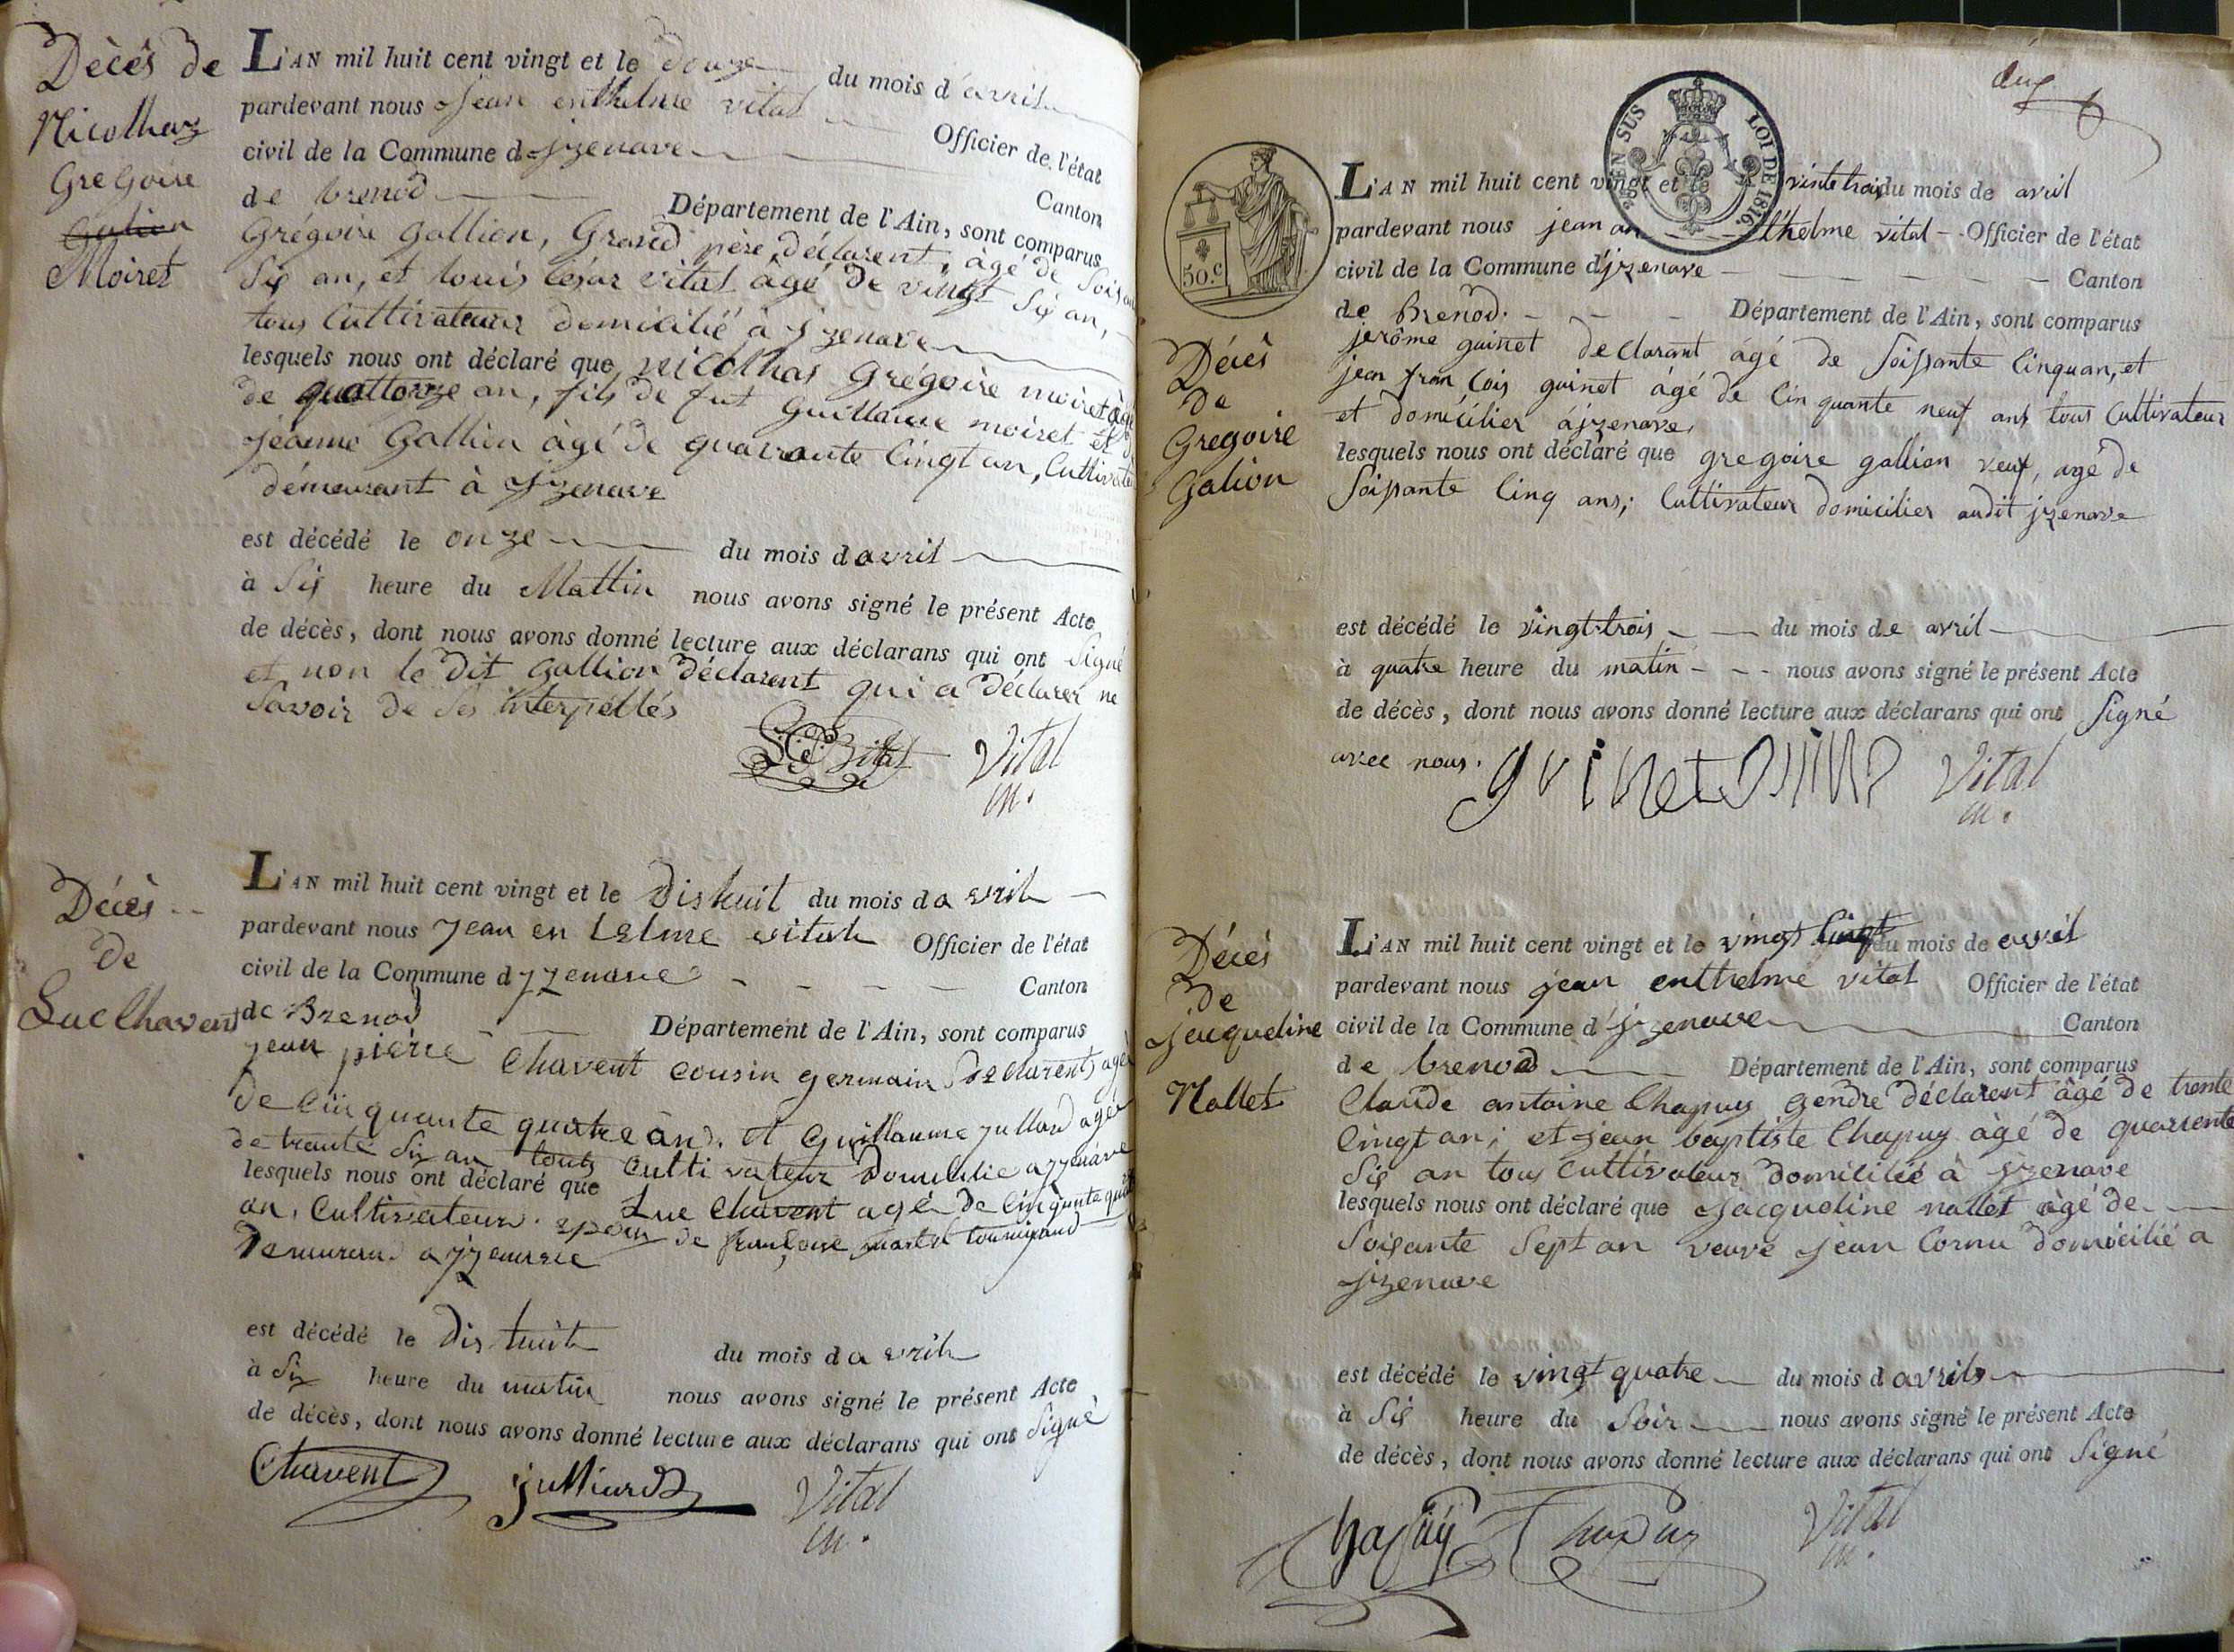 Décès de
Nicolhas
Gregoire
Galion
Moiret
L'AN mil huit cent vingt et le douze du mois d'avril
pardevant nous Jean enthelme vital Officier de l'état
civil de la Commune d jzenave Canton
de brenod Département de l'Ain, sont comparus
Grégoire Gallion, Grand père, déclarent, âgé de Soisante
Six an, et louis César vital âgé de vingt Six an,
tous Cultivateurs domicilié à jzenave
lesquels nous ont déclaré que Nicolhas Grégoire moiret âgé
de quattorze an, fils de fut Guillaume moiret et
jéanne Gallion âgé de quarante Cingt an, Cultivateur
démeurant à jzenave
est décédé le onze du mois d avril
à Six heure du Mattin nous avons signé le présent Acte
de décès, dont nous avons donné lecture aux déclarans qui ont Signé
et non le dit Gallion déclarent qui a déclarer ne
Savoir de Ses interpéllés
Vital Vital
m.
Décès
De
Luc Chavent
L'AN mil huit cent vingt et le Dishuit du mois d avril
pardevant nous Jean en telme vital Officier de l'état
civil de la Commune d yzenave Canton
de Brenod Département de l'Ain, sont comparus
jean pierre Chavent cousin germain Declarent, agé
de Cinquante quatre an. et Guillaume jullard agé
de trante Six an touts Cultivateur Domicilie a jzenave
lesquels nous ont déclaré que Luc Chavent agé de Cinquante quatre
an, Cultivateur. epoux de françoise martel tournirand
Demeurand a jzenave
est décédé le Dis huit du mois d avril
à Six heure du matin nous avons signé le présent Acte
de décès, dont nous avons donné lecture aux déclarans qui ont Signé
Chavent Julliard Vital
m.
EN SUS LOI DE 1816.
50.c
Décès
De
Gregoire
Galion
L'AN mil huit cent vingt et le vintetrois du mois de avril
pardevant nous jean an thelme vital Officier de l'état
civil de la Commune d'jzenave Canton
de Brenod. Département de l'Ain, sont comparus
jerôme guinet declarant âgé de Soissante Cinquan, et
jean fran Cois guinet âgé de Cin quante neuf ans tous Cultivateur
et domicilier à jzenave,
lesquels nous ont déclaré que gregoire gallion veuf, agé de
Soissante Cinq ans; Cultivateur domicilier audit jzenave
est décédé le vingt-trois du mois de avril
à quatre heure du matin nous avons signé le présent Acte
de décès, dont nous avons donné lecture aux déclarans qui ont Signé
avec nous. guinet Vital
m.
Décès
De
jacqueline
Nallet
L'AN mil huit cent vingt et le vingt Cingt du mois de avril
pardevant nous jean enthelme vital Officier de l'état
civil de la Commune d'jzenave Canton
de brenod Département de l'Ain, sont comparus
Claude antoine Chapuy gendre déclarent âgé de trente
Cingt an; et jean baptiste Chapuy âgé de quarrente
Six an tous Cultivateur domicilié à jzenave
lesquels nous ont déclaré que jacqueline nallet âgé de
Soisante Sept an veuve jean Cornu domicilié a
jzenave
est décédé le vingt quatre du mois d avril
à Six heure du Soir nous avons signé le présent Acte
de décès, dont nous avons donné lecture aux déclarans qui ont Signé
Chapuy Chapuy Vital
m.